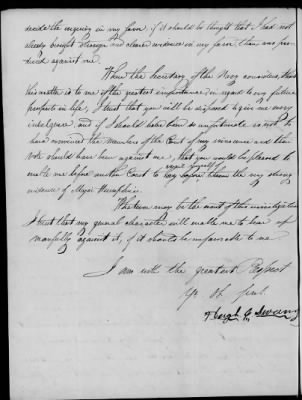 decide the inquiry in my favor, if it should be thought that I had not
already brought stronger and clearer evidence in my favor than was pro-
duced against me.
When the Secretary of the Navy considers, that
this matter is to me of the greatest importance in regard to my future
prospects in life, I trust that you will be disposed to give me every
indulgence and if I should have been so unfortunate as not to
have convinced the members of the Court of my innocence and their
vote should have been against me, that you would be pleased to
enable me before another Court to bring before them the very strong
evidence of Major
Whatever may be the result of this investigation
I trust that my general character will enable me to bear up
manfully against it, if it should be unfavorable to me
I am with the greatest Respect
Yr Ob. Servt.
Hugh